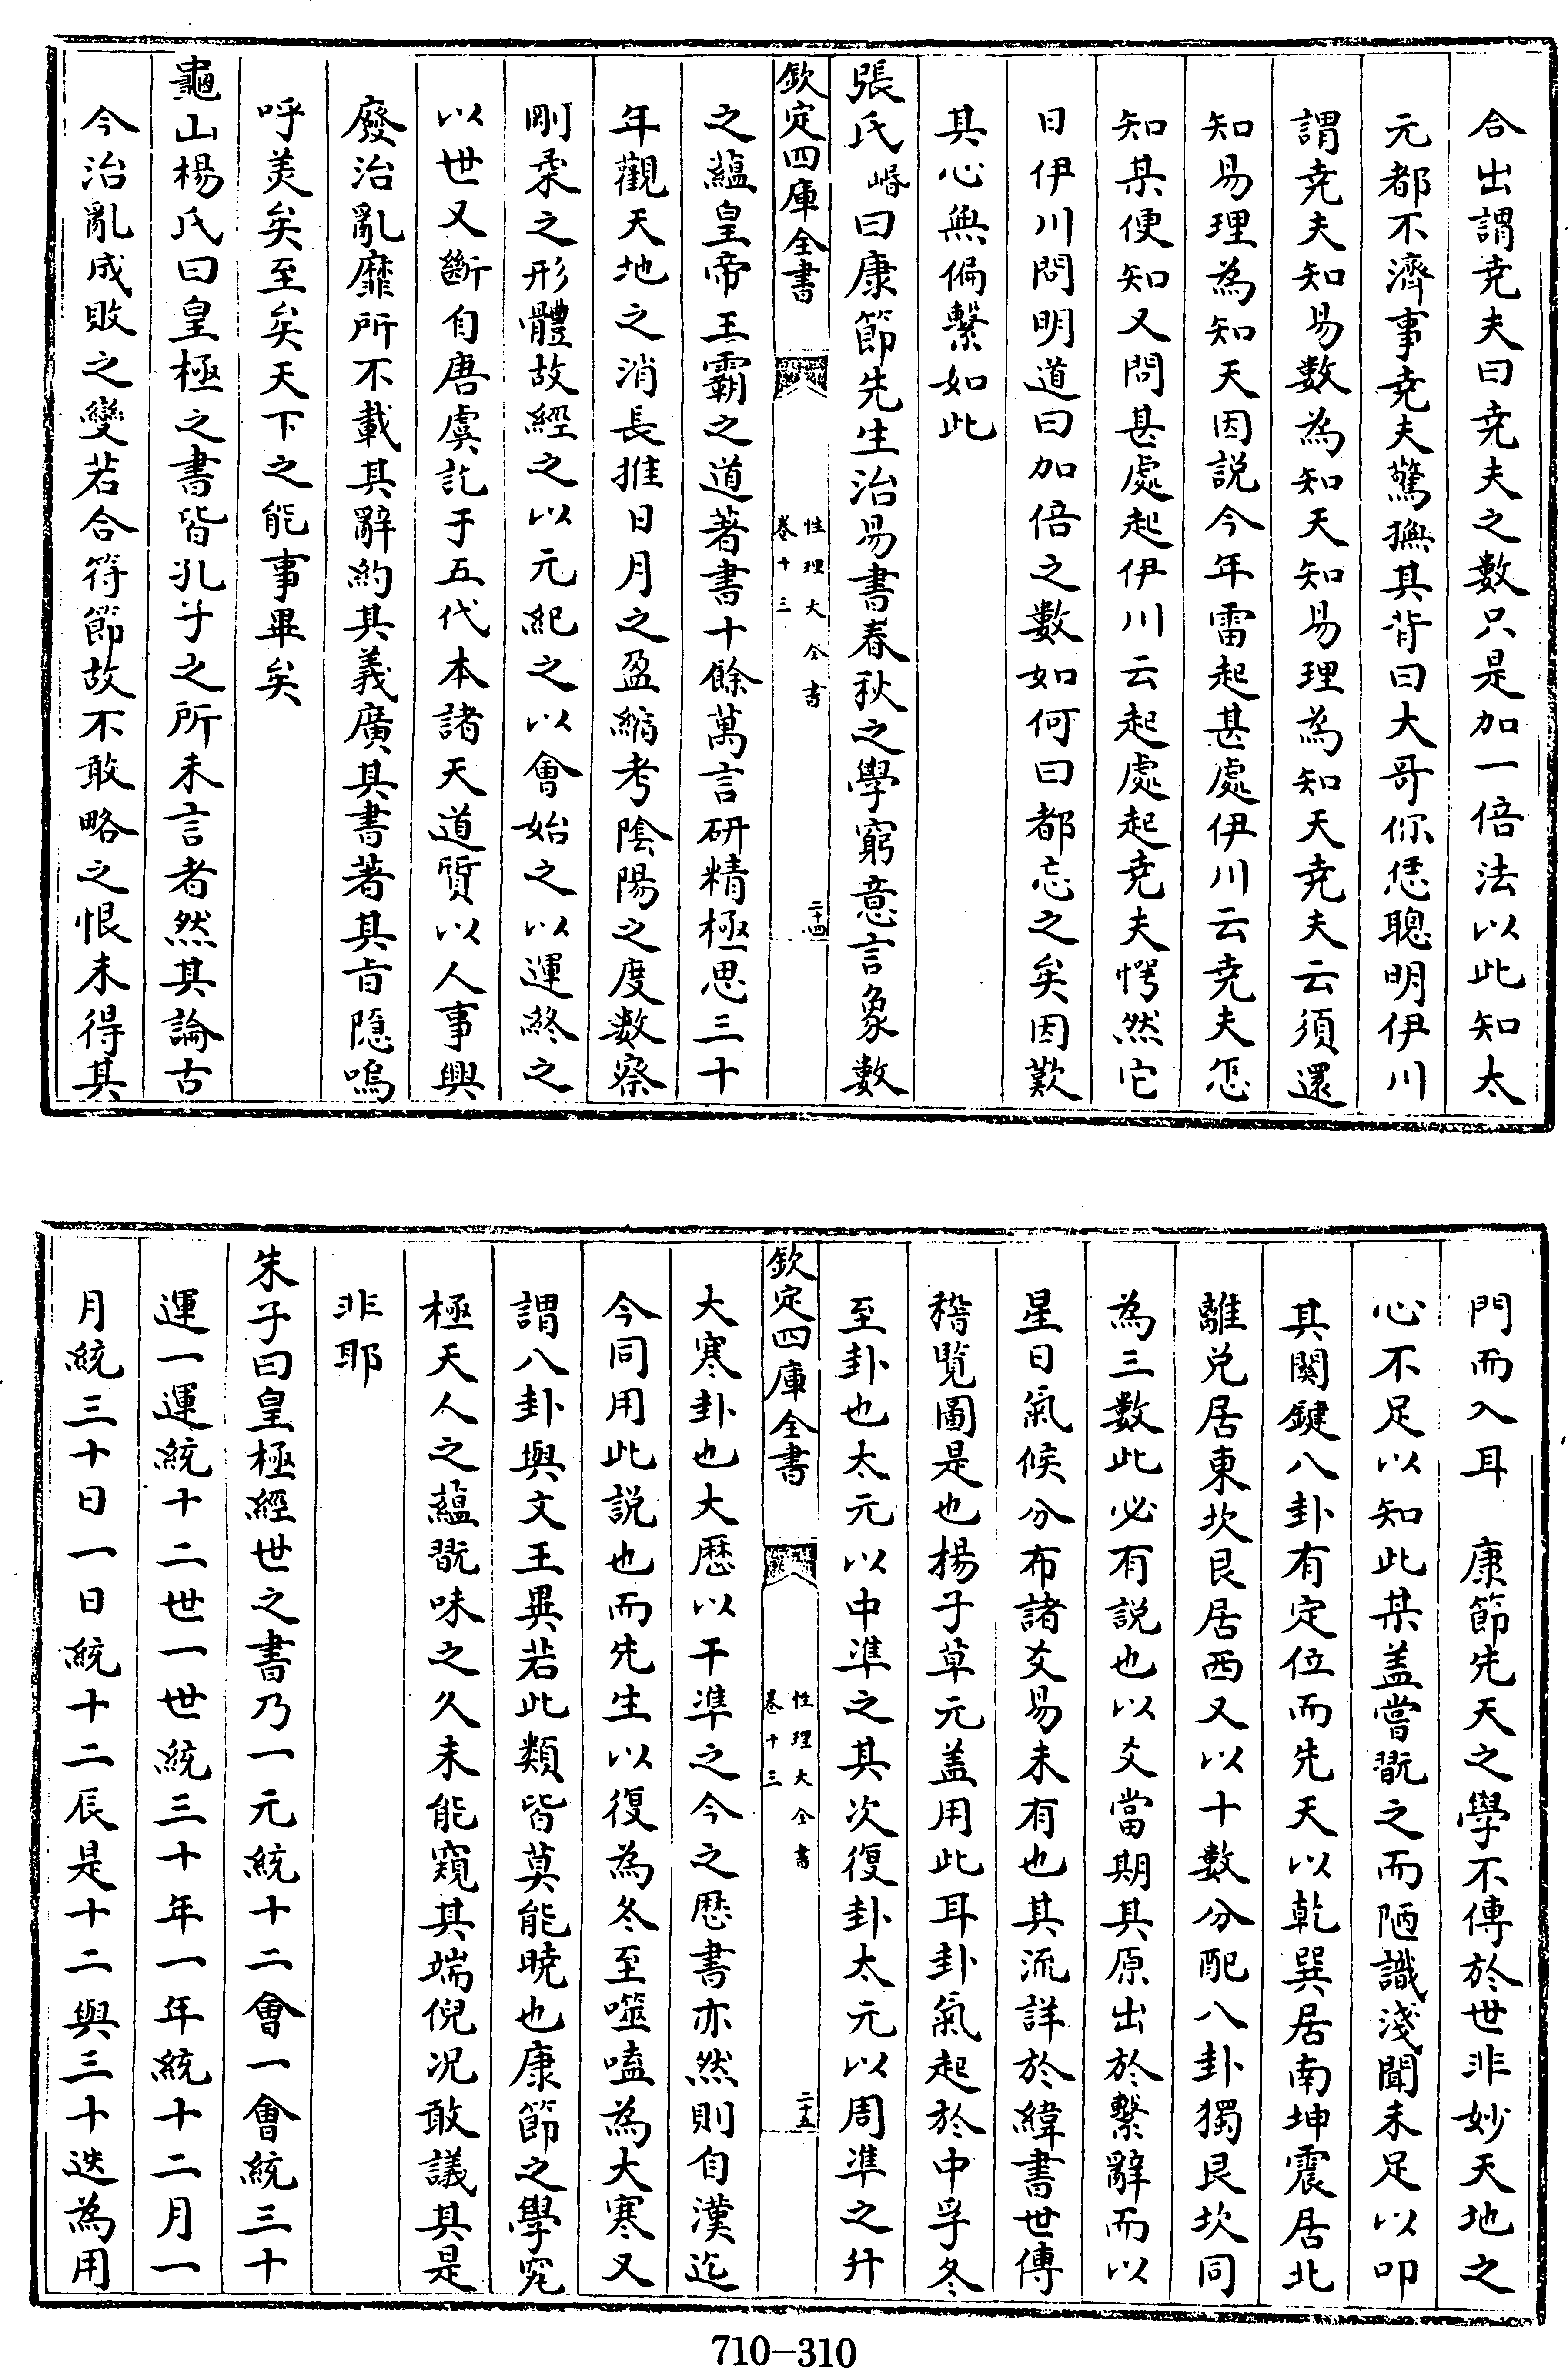 合出謂尭夫曰尭夫之數只是加一倍法以此知太
元都不濟事尭夫驚撫其背曰大哥你恁聰明伊川
謂尭夫知易數為知天知易理為知天尭夫云須還
知易理為知天因説今年雷起甚處伊川云尭夫怎
知某便知又問甚處起伊川云起處起尭夫愕然它
日伊川問明道曰加倍之數如何曰都忘之矣因歎
其心無偏繫如此
張氏㟭曰康節先生治易書春秋之學窮意言象數
欽定四庫全書
性理大全書
卷十三
二十四
之蘊皇帝王霸之道著書十餘萬言研精極思三十
年觀天地之消長推日月之盈縮考陰陽之度數察
剛柔之形體故經之以元紀之以會始之以運終之
以世又斷自唐虞訖于五代本諸天道質以人事興
廢治亂靡所不載其辭約其義廣其書著其旨隠嗚
呼美矣至矣天下之能事畢矣
龜山楊氏曰皇極之書皆孔子之所未言者然其論古
今治亂成敗之變若合符節故不敢略之恨未得其
門而入耳　康節先天之學不傳於世非妙天地之
心不足以知此某盖嘗翫之而陋識淺聞未足以叩
其關鍵八卦有定位而先天以乾巽居南坤震居北
離兑居東坎艮居西又以十數分配八卦獨艮坎同
為三數此必有説也以爻當期其原出於繫辭而以
星日氣候分布諸爻易未有也其流詳於緯書世傳
稽覽圖是也楊子草元盖用此耳卦氣起於中孚冬
至卦也太元以中凖之其次復卦太元以周凖之升
欽定四庫全書
性理大全書
卷十三
二十五
大寒卦也大厯以干凖之今之厯書亦然則自漢迄
今同用此説也而先生以復為冬至噬嗑為大寒又
謂八卦與文王異若此類皆莫能曉也康節之學究
極天人之蘊翫味之久未能窺其端倪况敢議其是
非耶
朱子曰皇極經世之書乃一元統十二會一會統三十
運一運統十二世一世統三十年一年統十二月一
月統三十日一日統十二辰是十二與三十迭為用
710-310